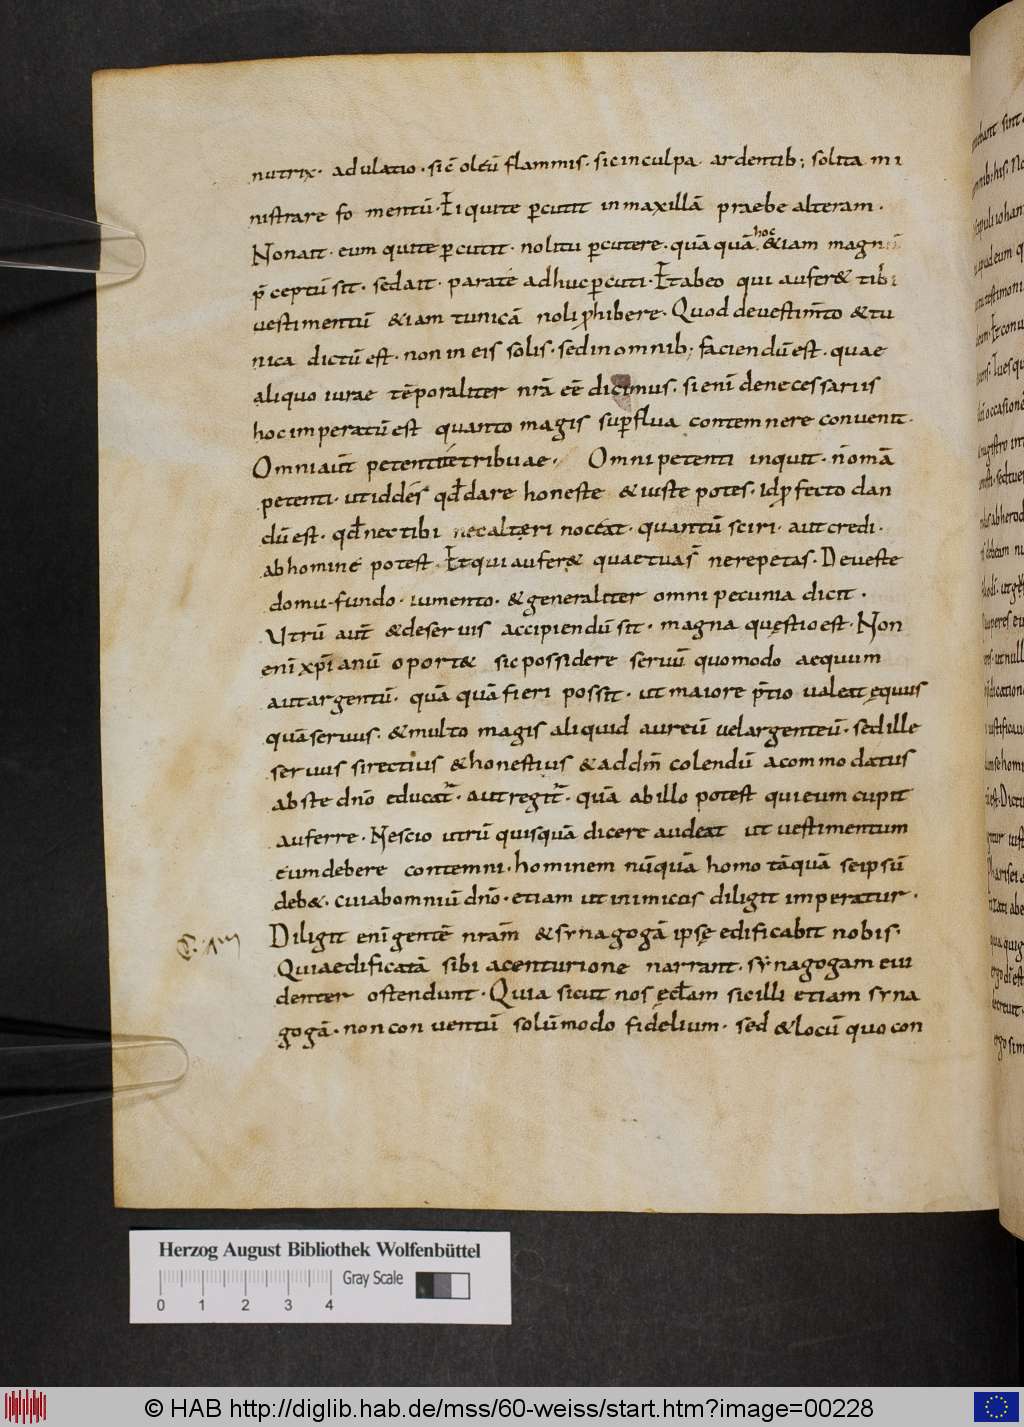 nutrix· adulatio· sic̄ oleū flammis· sicinculpa ardentib; solita mi
nistrare fo mentū· Et quite p̄cutit inmaxillā praebe alteram·
Nonait· eum quite p̄cutit· nolitu p̄cutere· quāquā hoc &iam magnū
p̄ceptū sit· sedait· parate adhuc p̄cuti· Etabeo qui aufer& tibi
uestimentū &iam tunicā noli p̄hibere· Quod deuestim̄to &tu
nica dictū est· non in eis solis· sed in omnib; faciendū est· quae
aliquo iurae tēporaliter nr̄a eē dicimus· si enī denecessariis
hoc imperatū est quanto magis sup̄flua contemnere conuenit·
Omniaut̄ petenti te tribuae· Omni petenti inquit· n̄ omā
petenti· ut id des qđ dare honeste &iuste potes· Id p̄fecto dan
dū est· qđ nec tibi nec alteri noceat· quantū sciri· aut credi·
ab homine potest· Et qui aufer& quae tua s̄ ne repetas· De ueste
domu· fundo· iumento· & generaliter omni pecunia dicit·
Utrū aut̄ & de seruis accipiendū sit· magna quęstio est· Non
enī xp̄ianū oport& sic possidere seruū quomodo aequum
aut argentū· quāquā fieri possit· ut maiore p̄tio ualeat ęquus
quā seruus· & multo magis aliquid aureū uel argenteū· sed ille
seruus si rectius & honestius & ad dm̄ colendū acommodatus
abs te dn̄o educat̄· aut regit̄· quā ab illo potest qui eum cupit
auferre· Nescio utrū quisquā dicere audeat ut uestimentum
eum debere contemni· hominem nūquā homo tāquā se ipsū
deb&· cui ab omniū dn̄o· etiam ut inimicos diligit imperatur·
Diligit enī gentē nram̄ & synagogā ipsę edificabit nobis·
Quia edificatā sibi a centurione narrant· synagogam eui
denter ostendunt· Quia sicut nos ęcl̄am sic illi etiam syna
gogā· non con uentū solūmodo fidelium· sed & locū quo con
Herzog August Bibliothek Wolfenbüttel
Gray Scale
0 1 2 3 4
© HAB http://diglib.hab.de/mss/60-weiss/start.htm?image=00228